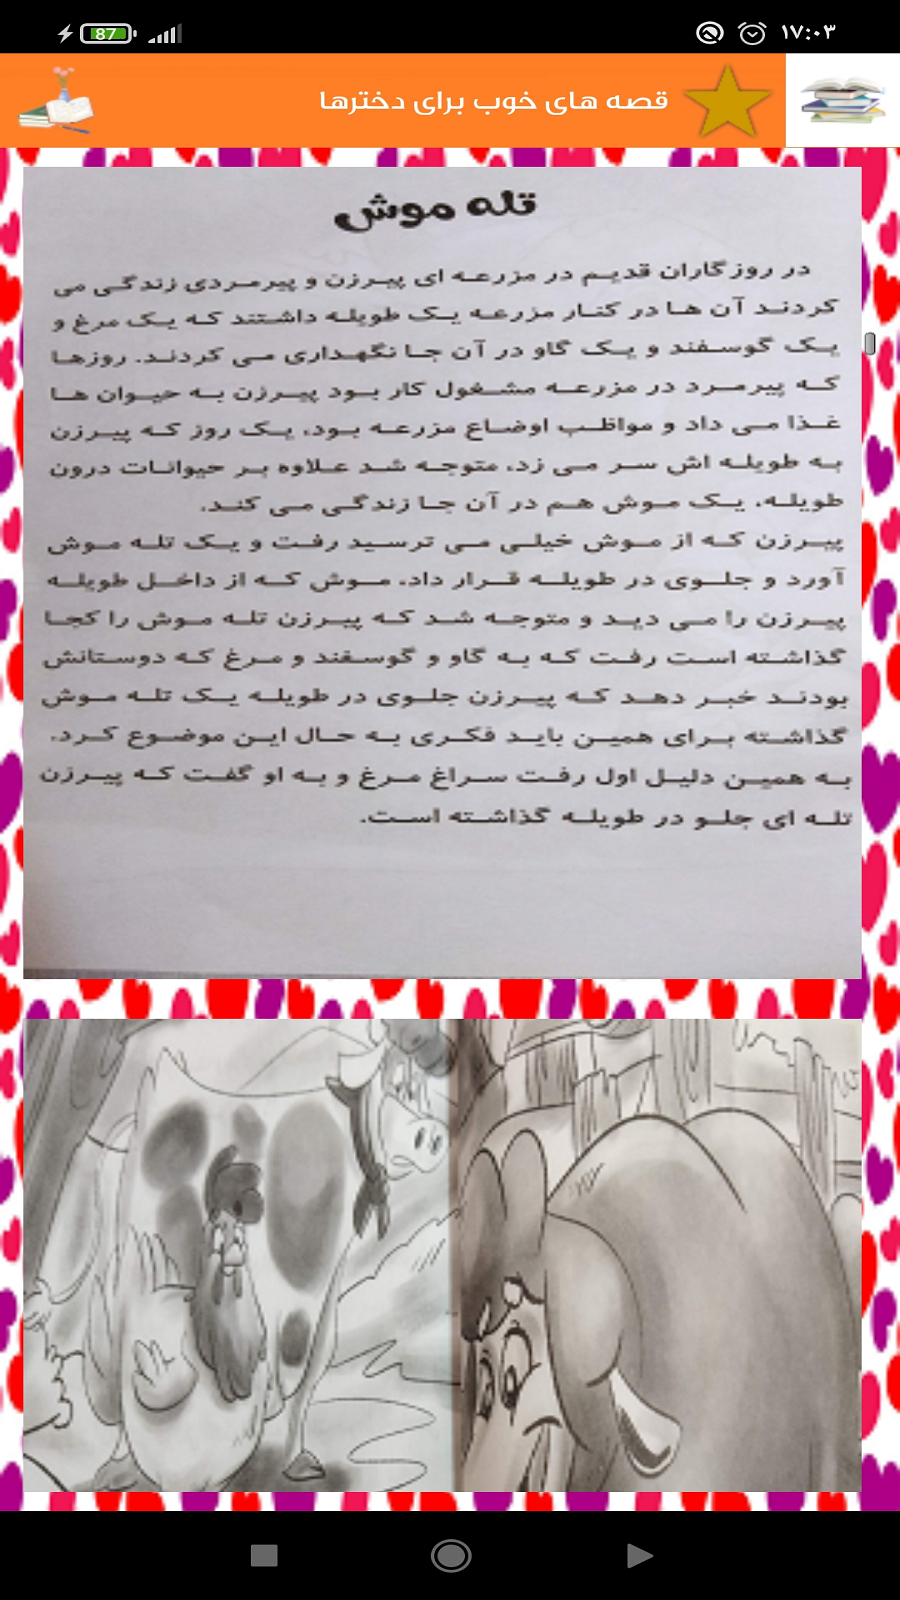 87
۱۷:۰۳
قصه های خوب برای دخترها
تله موش
در روزگاران قدیم در مزرعه ای پیرزن و پیرمردی زندگی می
کردند آن ها در کنار مزرعه یک طویله داشتند که یک مرغ و
یک گوسفند و یک گاو در آن جا نگهداری می کردند. روزها
که پیرمرد در مزرعه مشغول کار بود پیرزن به حیوان ها
غذا می داد و مواظب اوضاع مزرعه بود، یک روز که پیرزن
به طویله اش سر می زد، متوجه شد علاوه بر حیوانات درون
طویله، یک موش هم در آن جا زندگی می کند.
پیرزن که از موش خیلی می ترسید رفت و یک تله موش
آورد و جلوی در طویله قرار داد، موش که از داخل طویله
پیرزن را می دید و متوجه شد که پیرزن تله موش را کجا
گذاشته است رفت که به گاو و گوسفند و مرغ که دوستانش
بودند خبر دهد که پیرزن جلوی در طویله یک تله موش
گذاشته برای همین باید فکری به حال این موضوع کرد.
به همین دلیل اول رفت سراغ مرغ و به او گفت که پیرزن
تله ای جلو در طویله گذاشته است.